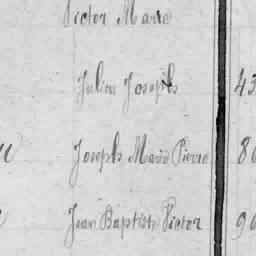 Victor Marie
Julien Joseph 43
Joseph Marie Pierre 86
Jean Baptiste Victor 96